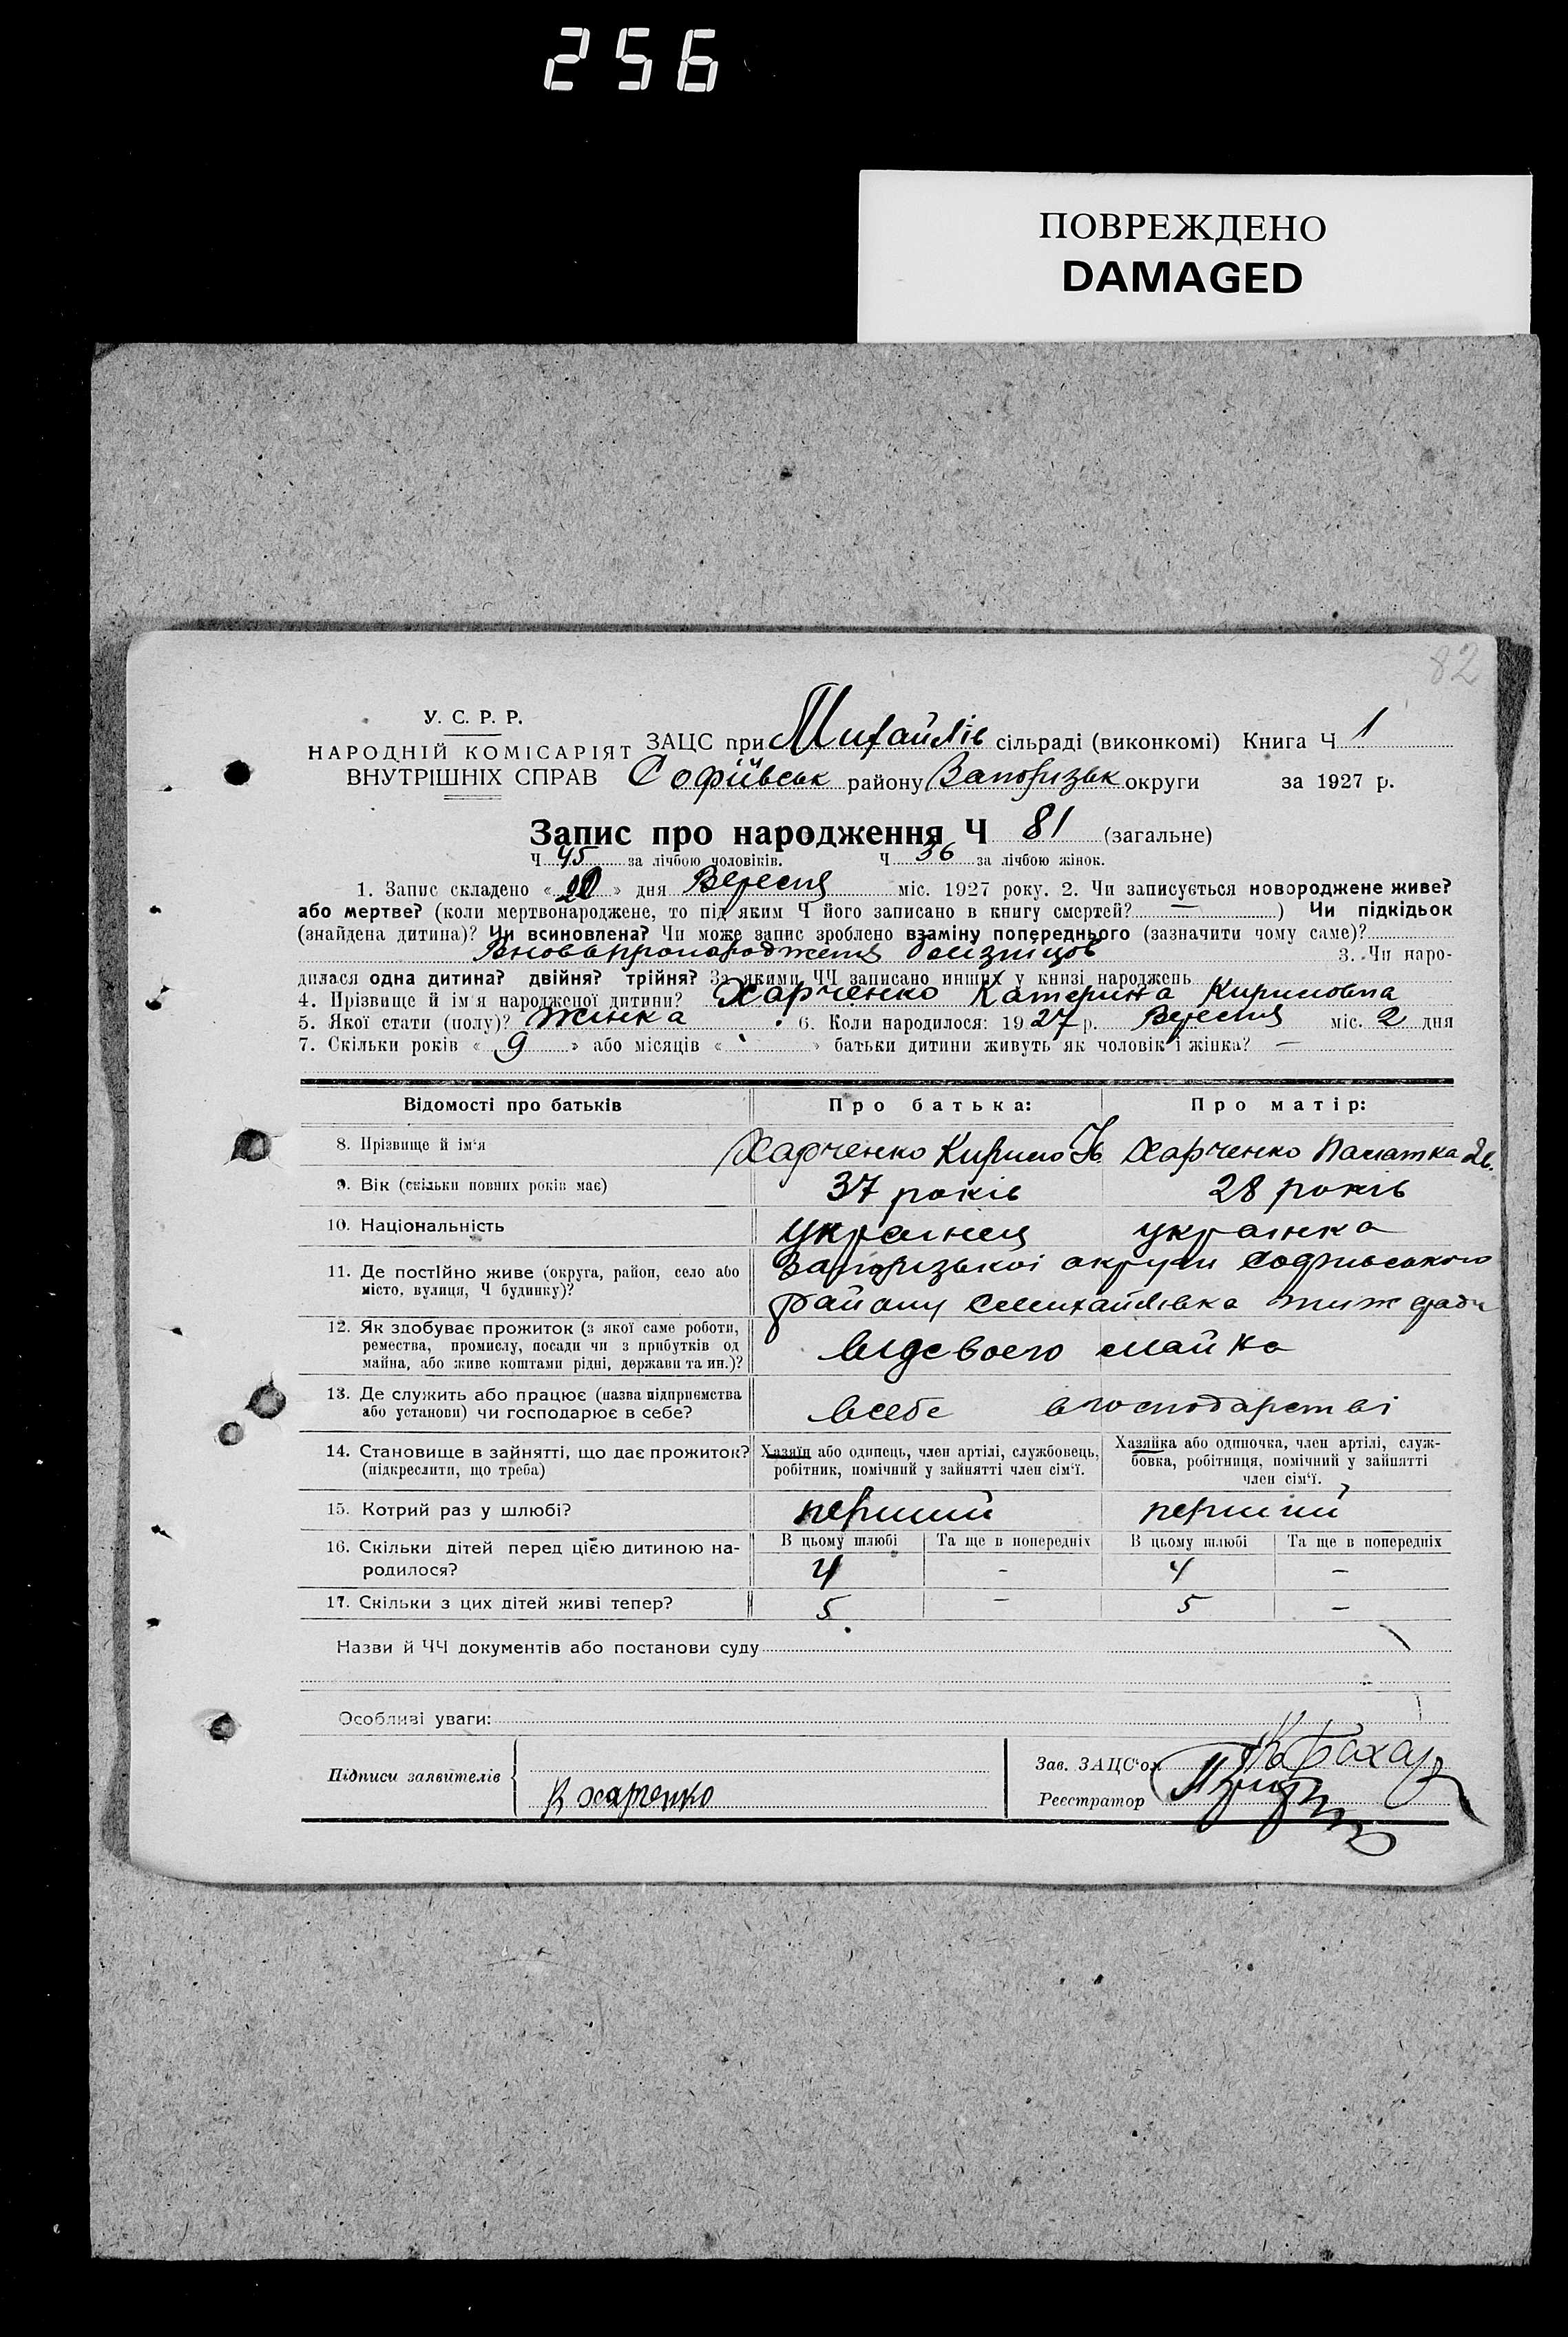 256
ПОВРЕЖДЕНО
DAMAGED
82
У. С. Р. Р.
НАРОДНІЙ КОМІСАРІЯТ
ВНУТРІШНІХ СПРАВ
ЗАЦС при Михайлів сільраді (виконкомі) Книга Ч 1
Софіївськ району Запорізьк округи за 1927 р.
Запис про народження Ч 81 (загальне)
Ч 45 за лічбою чоловіків. Ч 36 за лічбою жінок.
1. Запис складено « » дня Вересня міс. 1927 року. 2. Чи записується новороджене живе?
або мертве? (коли мертвонароджене, то під яким Ч його записано в книгу смертей? — ) Чи підкідьок
(знайдена дитина)? Чи всиновлена? Чи може запис зроблено взаміну попереднього (зазначити чому саме)?
3. Чи наро-
дилася одна дитина? двійня? трійня? За якими ЧЧ записано инших у книзі народжень
4. Прізвище й ім'я народженої дитини? Харченко Катерина Кириловна
5. Якої стати (полу)? Жінка 6. Коли народилося: 1927 р. Вересня міс. 2 дня
7. Скільки років « 9 » або місяців « » батьки дитини живуть як чоловік і жінка? —
Відомості про батьків Про батька: Про матір:
8. Прізвище й ім'я Харченко Кирило Харченко
9. Вік (скільки повних років має) 37 років 28 років
10. Національність українец українка
11. Де постійно живе (округа, район, село або
місто, вулиця, Ч будинку)?
Запорізькоі округи Софиівського
району
12. Як здобуває прожиток (з якої саме роботи,
ремества, промислу, посади чи з прибутків од
майна, або живе коштами рідні, держави та ин.)?
відсвоего майна
13. Де служить або працює (назва підприємства
або установи) чи господарює в себе?
всебе вгосподарстві
14. Становище в зайнятті, що дає прожиток?
(підкреслити, що треба)
Хазяїн або одинець, член артілі, службовець,
робітник, помічний у зайнятті член сім'ї.
Хазяйка або одиночка, член артілі, служ-
бовка, робітниця, помічний у зайнятті
член сім'ї.
15. Котрий раз у шлюбі? перший перший
16. Скільки дітей перед цією дитиною на-
родилося?
В цьому шлюбі Та ще в попередніх В цьому шлюбі Та ще в попередніх
4 - 4 -
17. Скільки з цих дітей живі тепер? 5 - 5 -
Назви й ЧЧ документів або постанови суду
Особливі уваги:
Підписи заявителів
К харченко
Зав. ЗАЦС'ом
Реєстратор